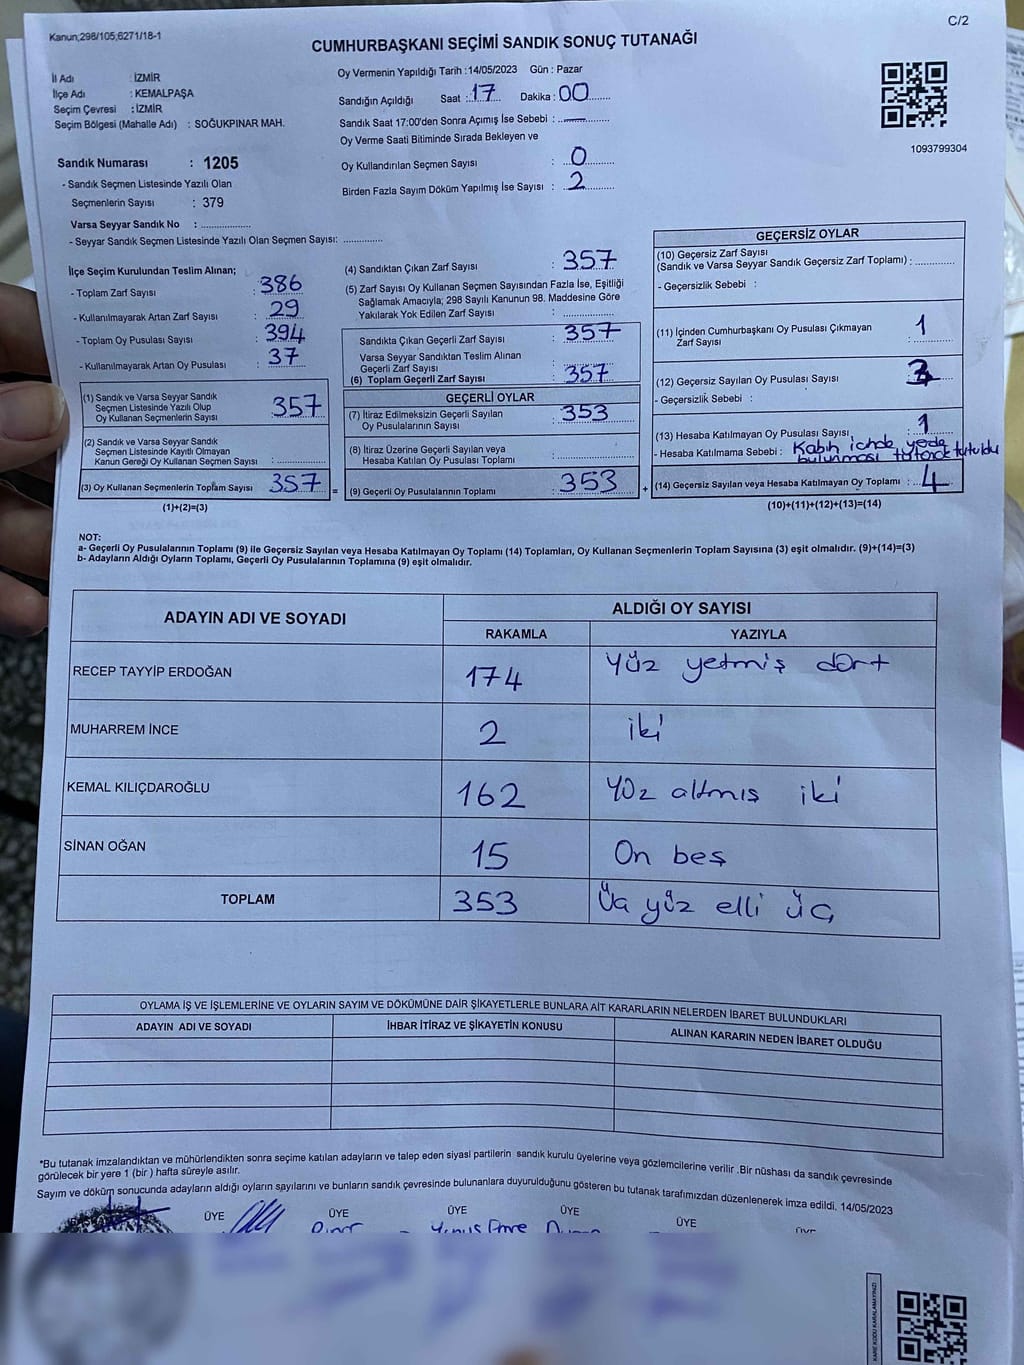 Kanun;298/105;6271/18-1
C/2
CUMHURBAŞKANI SEÇİMİ SANDIK SONUÇ TUTANAĞI
İl Adı : İZMİR
İlçe Adı : KEMALPAŞA
Seçim Çevresi : İZMİR
Seçim Bölgesi (Mahalle Adı) : SOĞUKPINAR MAH.
Sandık Numarası : 1205
- Sandık Seçmen Listesinde Yazılı Olan
Seçmenlerin Sayısı : 379
Varsa Seyyar Sandık No : ..................
- Seyyar Sandık Seçmen Listesinde Yazılı Olan Seçmen Sayısı: ..............
Oy Vermenin Yapıldığı Tarih :14/05/2023 Gün : Pazar
Sandığın Açıldığı Saat : 17 Dakika : 00
Sandık Saat 17:00'den Sonra Açımış İse Sebebi : —
Oy Verme Saati Bitiminde Sırada Bekleyen ve
Oy Kullandırılan Seçmen Sayısı : 0
Birden Fazla Sayım Döküm Yapılmış İse Sayısı : 2
1093799304
İlçe Seçim Kurulundan Teslim Alınan;
- Toplam Zarf Sayısı : 386
- Kullanılmayarak Artan Zarf Sayısı : 29
- Toplam Oy Pusulası Sayısı : 394
- Kullanılmayarak Artan Oy Pusulası : 37
(1) Sandık ve Varsa Seyyar Sandık
Seçmen Listesinde Yazılı Olup
Oy Kullanan Seçmenlerin Sayısı : 357
(2) Sandık ve Varsa Seyyar Sandık
Seçmen Listesinde Kayıtlı Olmayan
Kanun Gereği Oy Kullanan Seçmen Sayısı :
(3) Oy Kullanan Seçmenlerin Toplam Sayısı 357
(1)+(2)=(3)
=
(4) Sandıktan Çıkan Zarf Sayısı : 357
(5) Zarf Sayısı Oy Kullanan Seçmen Sayısından Fazla İse, Eşitliği
Sağlamak Amacıyla; 298 Sayılı Kanunun 98. Maddesine Göre
Yakılarak Yok Edilen Zarf Sayısı :
Sandıkta Çıkan Geçerli Zarf Sayısı : 357
Varsa Seyyar Sandıktan Teslim Alınan
Geçerli Zarf Sayısı
(6) Toplam Geçerli Zarf Sayısı : 357
GEÇERLİ OYLAR
(7) İtiraz Edilmeksizin Geçerli Sayılan
Oy Pusulalarının Sayısı : 353
(8) İtiraz Üzerine Geçerli Sayılan veya
Hesaba Katılan Oy Pusulası Toplamı :
(9) Geçerli Oy Pusulalarının Toplamı : 353
+
GEÇERSİZ OYLAR
(10) Geçersiz Zarf Sayısı
(Sandık ve Varsa Seyyar Sandık Geçersiz Zarf Toplamı) : .............
- Geçersizlik Sebebi :
(11) İçinden Cumhurbaşkanı Oy Pusulası Çıkmayan
Zarf Sayısı : 1
(12) Geçersiz Sayılan Oy Pusulası Sayısı :
- Geçersizlik Sebebi :
(13) Hesaba Katılmayan Oy Pusulası Sayısı : 1
- Hesaba Katılmama Sebebi : Kabin içinde yerde
bulunması tutanak tutuldu
(14) Geçersiz Sayılan veya Hesaba Katılmayan Oy Toplamı : 4
(10)+(11)+(12)+(13)=(14)
NOT:
a- Geçerli Oy Pusulalarının Toplamı (9) ile Geçersiz Sayılan veya Hesaba Katılmayan Oy Toplamı (14) Toplamları, Oy Kullanan Seçmenlerin Toplam Sayısına (3) eşit olmalıdır. (9)+(14)=(3)
b- Adayların Aldığı Oyların Toplamı, Geçerli Oy Pusulalarının Toplamına (9) eşit olmalıdır.
ADAYIN ADI VE SOYADI ALDIĞI OY SAYISI
RAKAMLA YAZIYLA
RECEP TAYYİP ERDOĞAN 174 Yüz yetmiş dört
MUHARREM İNCE 2 iki
KEMAL KILIÇDAROĞLU 162 Yüz altmış iki
SİNAN OĞAN 15 On beş
TOPLAM 353 Üç yüz elli üç
OYLAMA İŞ VE İŞLEMLERİNE VE OYLARIN SAYIM VE DÖKÜMÜNE DAİR ŞİKAYETLERLE BUNLARA AİT KARARLARIN NELERDEN İBARET BULUNDUKLARI
ADAYIN ADI VE SOYADI İHBAR İTİRAZ VE ŞİKAYETİN KONUSU ALINAN KARARIN NEDEN İBARET OLDUĞU
*Bu tutanak imzalandıktan ve mühürlendikten sonra seçime katılan adayların ve talep eden siyasi partilerin sandık kurulu üyelerine veya gözlemcilerine verilir .Bir nüshası da sandık çevresinde
görülecek bir yere 1 (bir ) hafta süreyle asılır.
Sayım ve döküm sonucunda adayların aldığı oyların sayılarını ve bunların sandık çevresinde bulunanlara duyurulduğunu gösteren bu tutanak tarafımızdan düzenlenerek imza edildi. 14/05/2023
ÜYE ÜYE ÜYE ÜYE ÜYE ÜYE
Yunus Emre